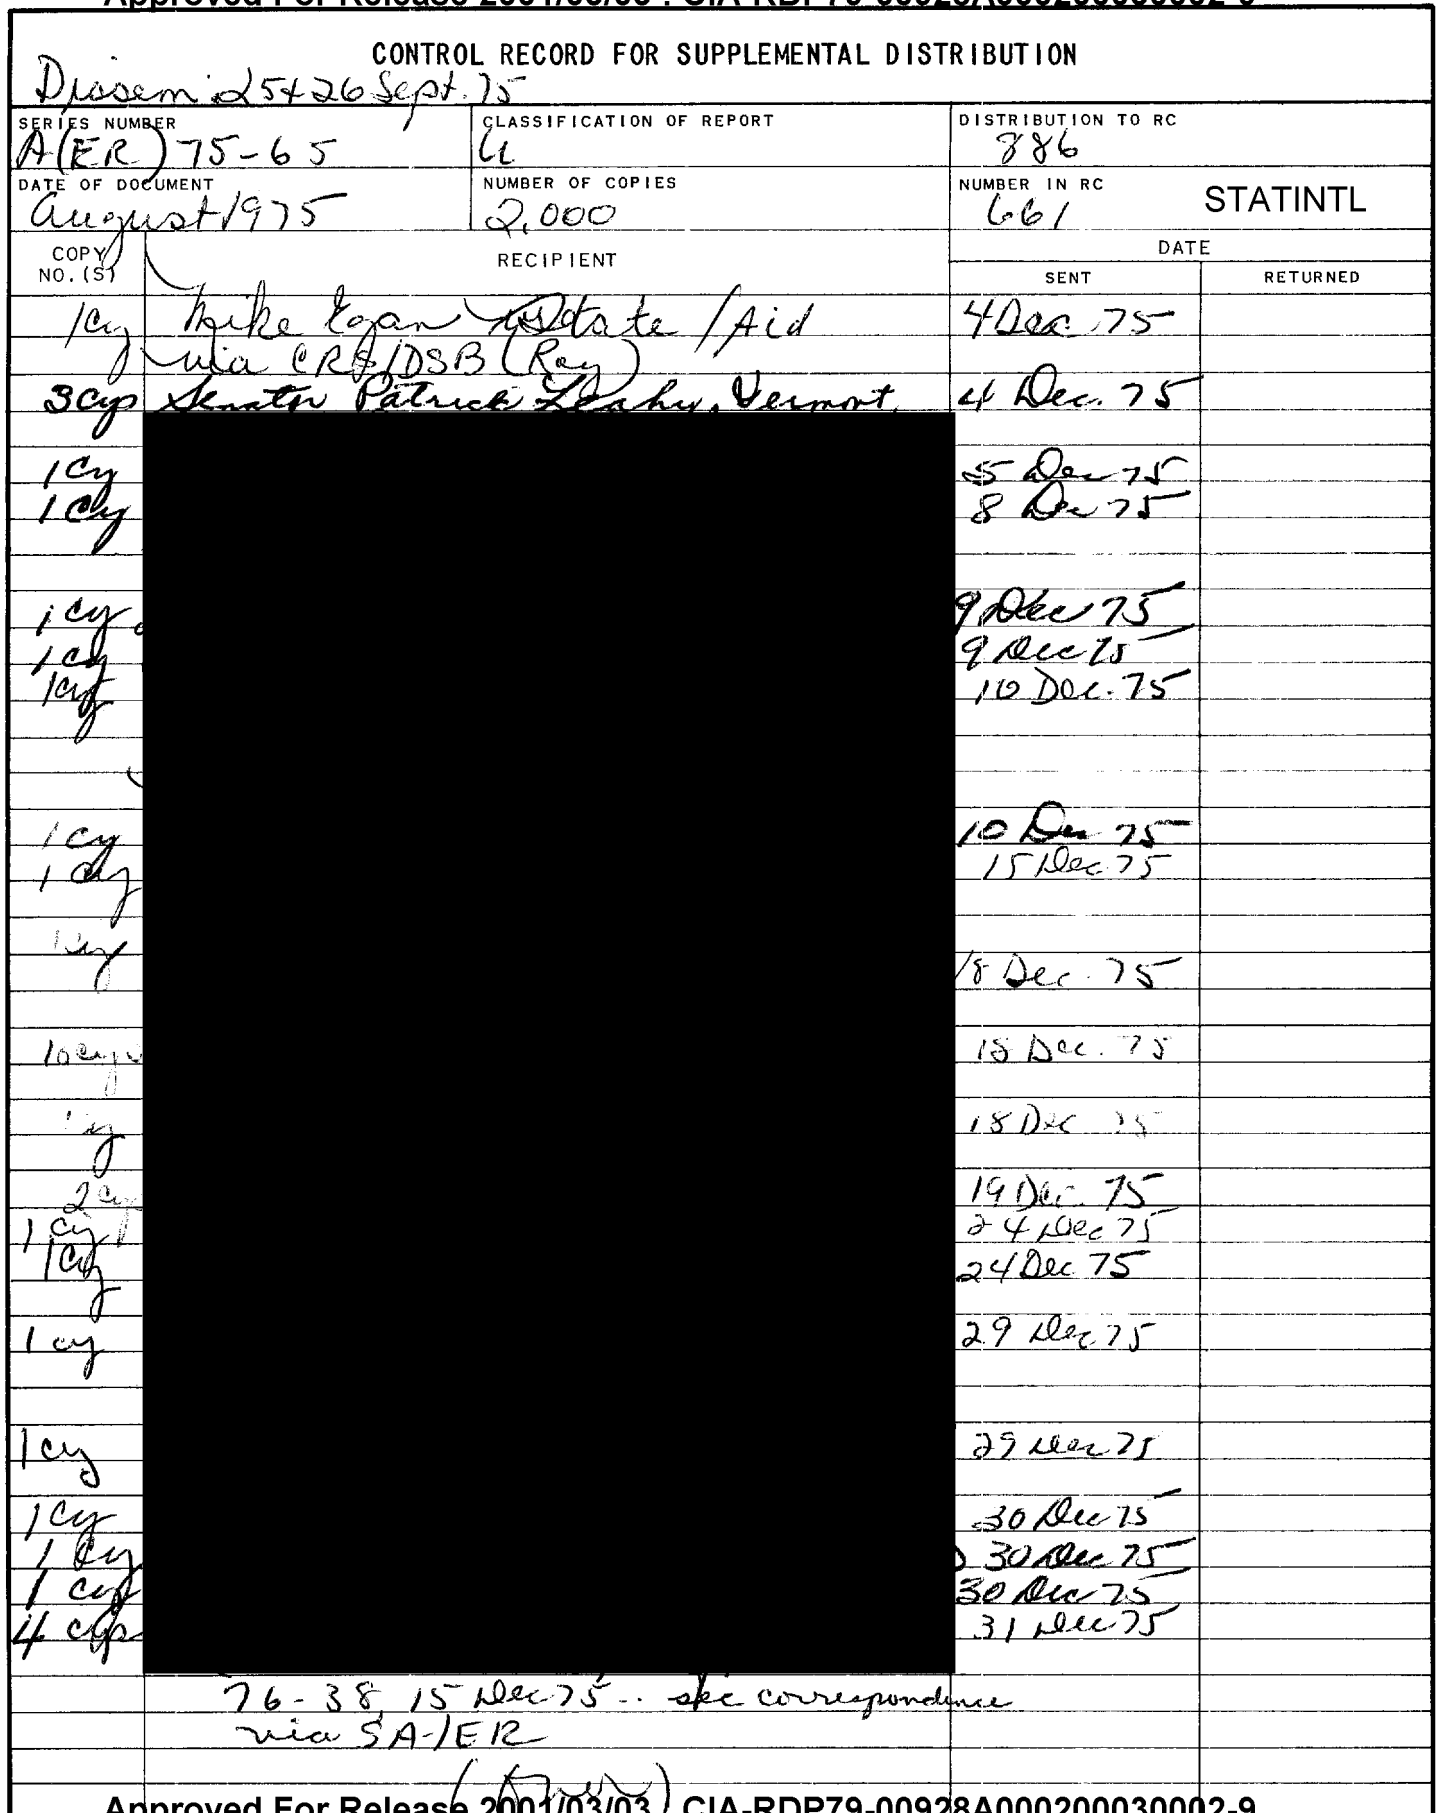 CONTROL RECORD FOR SUPPLEMENTAL DISTRIBUTION
Dissem 25+26 Sept. 75
SERIES NUMBER CLASSIFICATION OF REPORT DISTRIBUTION TO RC
A(ER) 75-65 U 886
DATE OF DOCUMENT NUMBER OF COPIES NUMBER IN RC STATINTL
August 1975 2,000 661
COPY NO.(S) RECIPIENT DATE
SENT RETURNED
1cy Mike Egan State/Aid 4 Dec 75
via CRS/DSB (Roy)
3cys Senator Patrick Leahy, Vermont 4 Dec. 75
1cy 5 Dec 75
1cy 8 Dec 75
1cy 9 Dec 75
1cy 9 Dec 75
1cy 10 Dec. 75
1cy 10 Dec 75
1cy 15 Dec 75
1cy
18 Dec. 75
10cys 18 Dec. 75
1cy 18 Dec 75
2cy 19 Dec. 75
1cy 24 Dec 75
1cy 24 Dec 75
1cy 29 Dec 75
1cy 29 Dec 75
1cy 30 Dec 75
1cy 30 Dec 75
1cy 30 Dec 75
4 cys 31 Dec 75
76-38, 15 Dec 75 .. see correspondence
via SA-/ER
Approved For Release 2001/03/03 CIA-RDP79-00928A000200030002-9